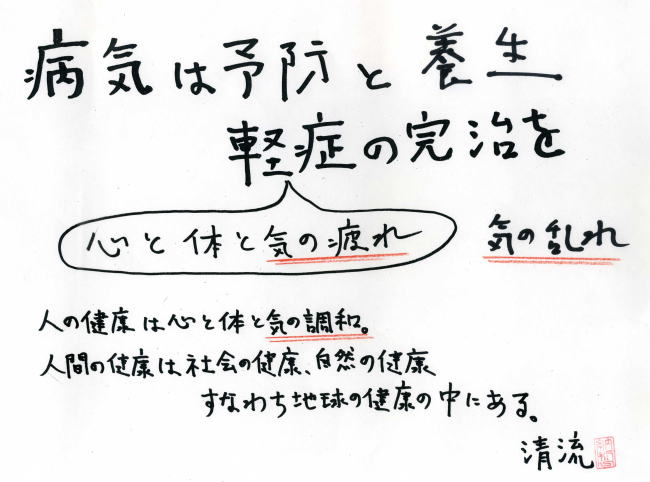 病気は予防と養生
軽症の完治を
心と体と気の疲れ
気の乱れ
人の健康は心と体と気の調和。
人間の健康は社会の健康、自然の健康
すなわち地球の健康の中にある。
清流